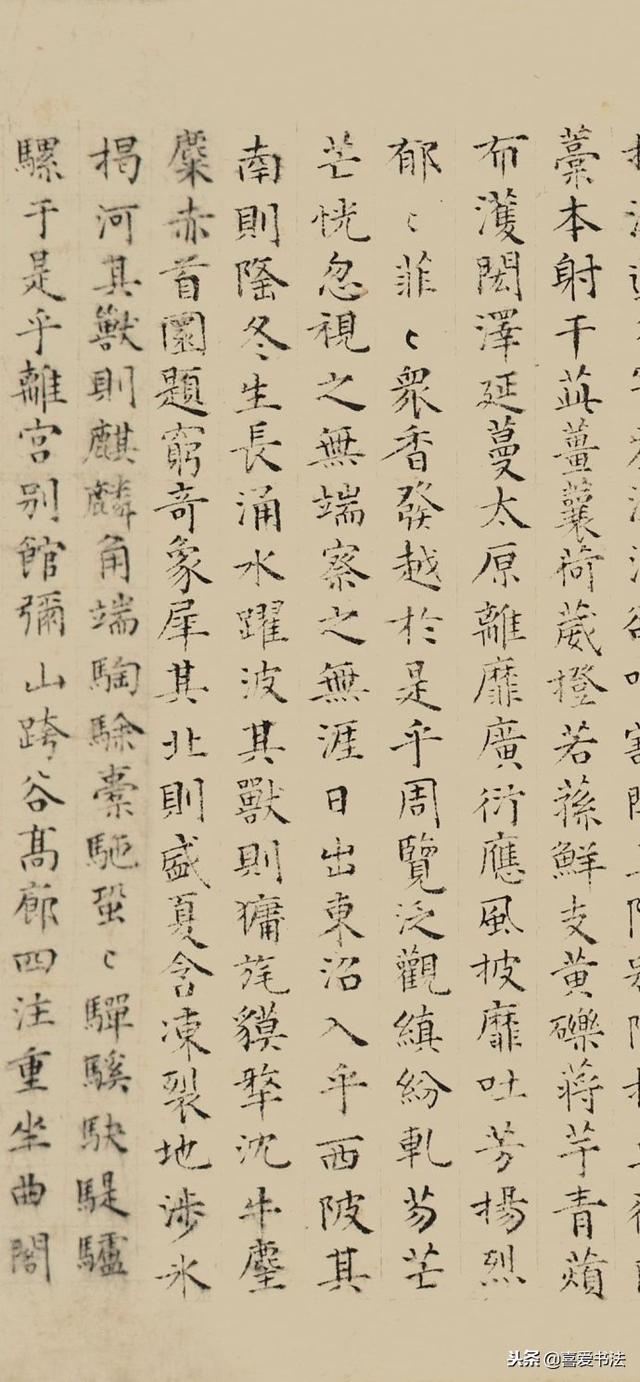 藁本射干茈薑蘘荷葴橙若蓀鮮支黃礫蔣芋青薠
布濩閎澤延蔓太原離靡廣衍應風披靡吐芳揚烈
郁〻菲〻衆香發越於是乎周覽泛觀縝紛軋芴芒
芒恍忽視之無端察之無涯日出東沼入乎西陂其
南則隆冬生長涌水躍波其獸則㺎旄貘犛沈牛麈
麋赤首圜題窮奇象犀其北則盛夏含凍裂地涉氷
揭河其獸則麒麟角端騊駼橐駞蛩〻驒騱駃騠驢
騾于是乎離宮别館彌山跨谷髙廊四注重坐曲閣
头条 @喜爱书法